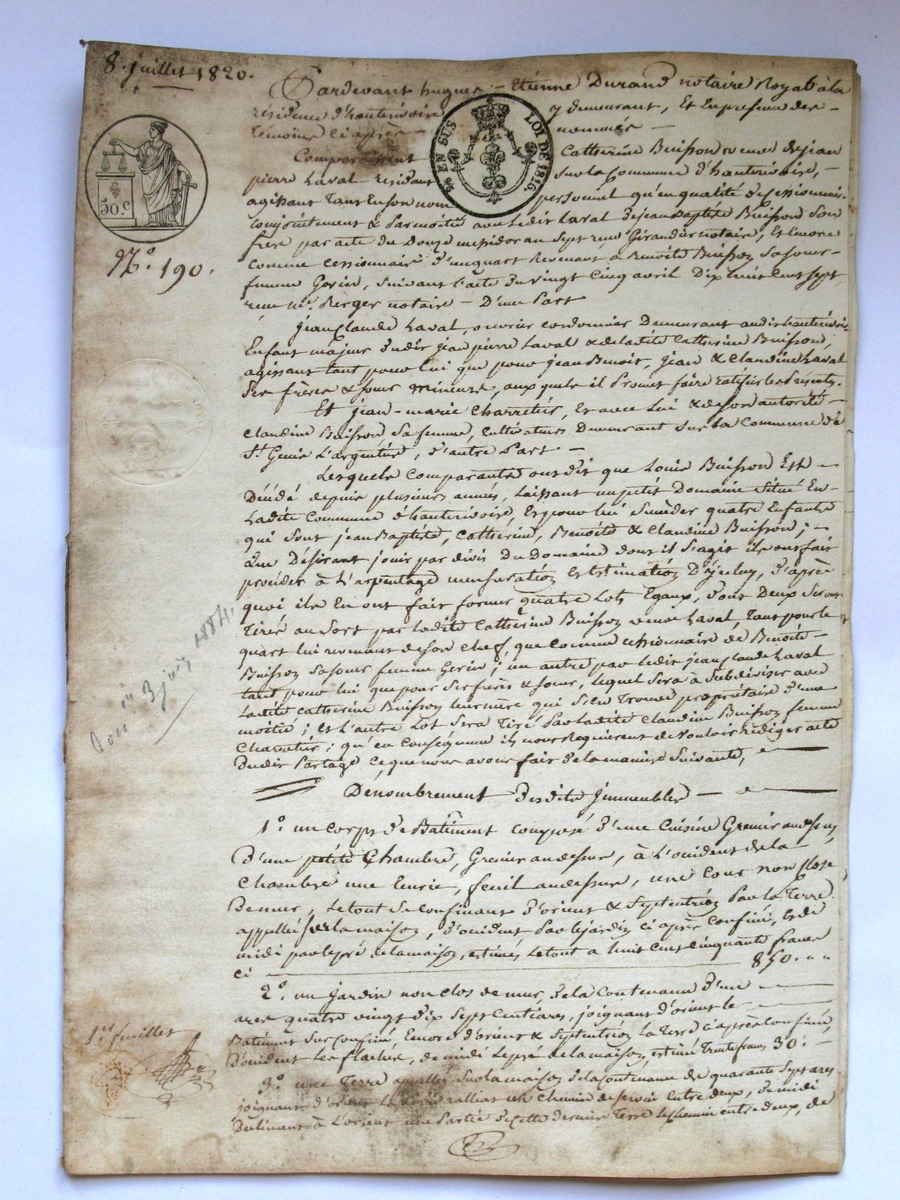 8. juillet 1820.
Pardevant hugues-Etienne Durand notaire Royal à la
résidence d'hauterivoire y demeurant, Et En présence des
témoins ci après nommés
EN SUS
LOI DE 1816
50.c
N.º 190.
Comparaissent Catherine Buisson veuve de jean
pierre Laval résidant sur la Commune d'hauterivoire,
agissant Tant En son nom personnel qu'en qualité de Cessionnaire
conjointement & Par moitié avec ledit Laval de jean Baptiste Buisson son
frère par acte du Douze messidor an Sept reçu Giraud notaire, Et Encore
comme cessionnaire d'un quart Revenant à Benoite Buisson sa sœur
femme Gorin, suivant l'acte du vingt Cinq avril Dix huit cent sept
reçu m.e Berger notaire - D'une Part
jean Claude Laval, ouvrier cordonnier Demeurant audit hauterivoire
Enfant majeur dudit jean pierre Laval & de ladite Catherine Buisson,
agissant tant pour lui que pour jean Benoit, jean & Claudine Laval
Ses frères & sœur mineurs, auxquels il Promet faire ratifier les Présentes.
Et jean-marie Charretier, Et avec Lui & de son autorité
Claudine Buisson sa femme, cultivateurs Demeurant sur la Commune de
St Genis L'argentière, d'autre Part
Lesquels Comparants ont dit que Louis Buisson Est
Décédé depuis plusieurs années, Laissant un petit Domaine Situé En
Ladite Commune d'hauterivoire, Et pour lui succéder quatre Enfants
qui sont jean Baptiste, Catherine, Benoite & Claudine Buisson;
Que Désirant jouir par divis du Domaine dont il s'agit ils ont fait
procéder à L'arpentage mensuration Et Estimation D'icelui, d'après
quoi ils En ont fait former quatre Lots Egaux, Dont Deux seront
Tirés au Sort par ladite Catherine Buisson veuve Laval, Tant pour le
quart lui revenant de son Chef, que comme cessionnaire de Benoite
Buisson sa sœur femme Gorin; un autre par ledit jean Claude Laval
tant pour lui que pour ses frères & sœur, lequel sera à Subdiviser avec
Ladite Catherine Buisson leur mère qui s'en Trouve propriétaire d'une
moitié; Et L'autre Lot sera Tiré Par ladite Claudine Buisson femme
Charretier; qu'en conséquence ils nous Requièrent de vouloir rédiger acte
Dudit Partage ce que nous avons fait de la manière Suivante,
3 juin 1884.
Dénombrement Desdits Immeubles
1.º un corps de Bâtiment composé d'une Cuisine Grenier au dessus,
D'une petite Chambre, Grenier au dessus, à l'occident de la
Chambre une Ecurie, fenil au dessus, une Cour non Close
De mur, Le tout Se confinant d'orient & Septentrion Par la Terre
appellée sur la maison, d'occident Par le jardin ci après confiné, Et de
midi par le pré de la maison, estimés Le tout à huit Cent cinquante francs
ci 850. " "
2.º un jardin non clos de mur, de la Contenance D'un
are quatre vingt dix Sept Centiares, joignant d'orient le
Bâtiment sus confiné, Encore d'orient & Septentrion la Terre ci après confinée,
D'occident Les flaches, de midi Le pré de la maison, estimé Trente francs 30.
1.er juillet
3.º une Terre appellée Sur la maison de la Contenance de quarante Sept ares
joignant d'orient chemin de service Entre deux, De midi
Déclinant à L'orient une Partie de cette dernière Terre le chemin entre deux, de